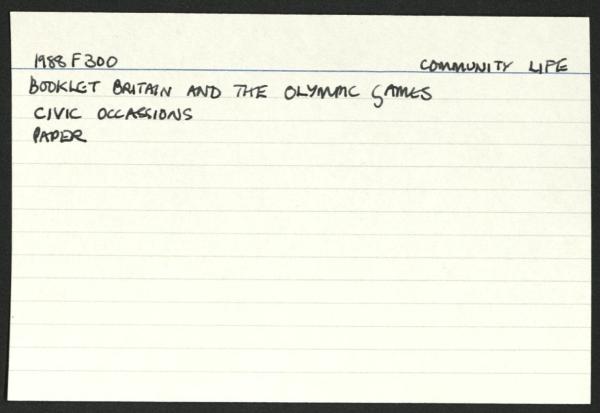 1988 F 300 COMMUNITY LIFE
BOOKLET BRITAIN AND THE OLYMPIC GAMES
CIVIC OCCASSIONS
PAPER